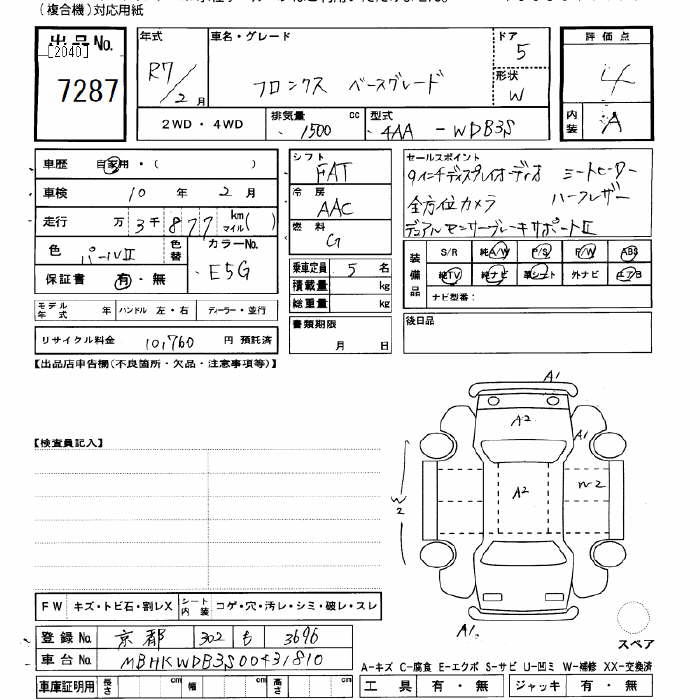 (複合機)対応用紙
出品No.
[2040]
7287
年式
R7/2月
車名・グレード
フロンクス ベースグレード
ドア
5
形状
W
評価点
4
内装
A
2WD・4WD
排気量 1500 cc
型式 4AA-WDB3S
車歴 自家用・( )
車検 10年 2月
走行 万 3千877 km マイル( )
色 パールII 色替
カラーNo. E5G
保証書 有・無
モデル年式 年 ハンドル 左・右 ディーラー・並行
リサイクル料金 101,760 円 預託済
シフト
FAT
冷房
AAC
燃料
G
乗車定員 5名
積載量 kg
総重量 kg
書類期限
月 日
セールスポイント
9インチディスプレイオーディオ シートヒーター
全方位カメラ ハーフレザー
デュアルセンサーブレーキサポートII
装備品
S/R 純A/W P/S P/W ABS
純TV 純ナビ 革シート 外ナビ エアB
ナビ型番:
後日品
【出品店申告欄(不良箇所・欠品・注意事項等)】
【検査員記入】
A1
A2
A1
A2
W2
W2
A1
スペア
FW キズ・トビ石・割レX シート内装 コゲ・穴・汚レ・シミ・破レ・スレ
登録No. 京都 302 も 3696
車台No. MBHKWDB3S00431810
車庫証明用 長さ cm 幅 cm 高さ cm
A-キズ C-腐食 E-エクボ S-サビ U-凹ミ W-補修 XX-交換済
工具 有・無 ジャッキ 有・無